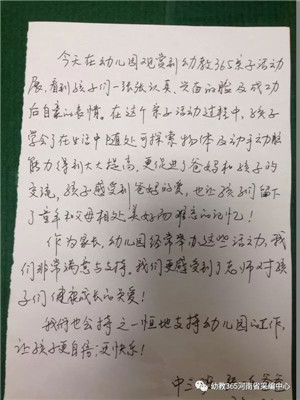 今天在幼儿园观赏到幼教365亲子活动
展,看到孩子们一张张认真、兴奋的脸及成功
后自豪的表情。在这个亲子活动过程中,孩子
学会了在生活中随处可探索物体及动手动脑
能力得到大大提高,更促进了爸妈和孩子的
交流,孩子感受到爸妈的爱,也让孩子们留下
了童年和父母相处美好而难忘的记忆!
作为家长,幼儿园经常举办这些活动,我
们非常满意与支持,我们更感受到了老师对孩
子们健康成长的关爱!
我们也会持之一恒地支持幼儿园的工作,
让孩子更自信,更快乐!
中三班
幼教365河南省采编中心